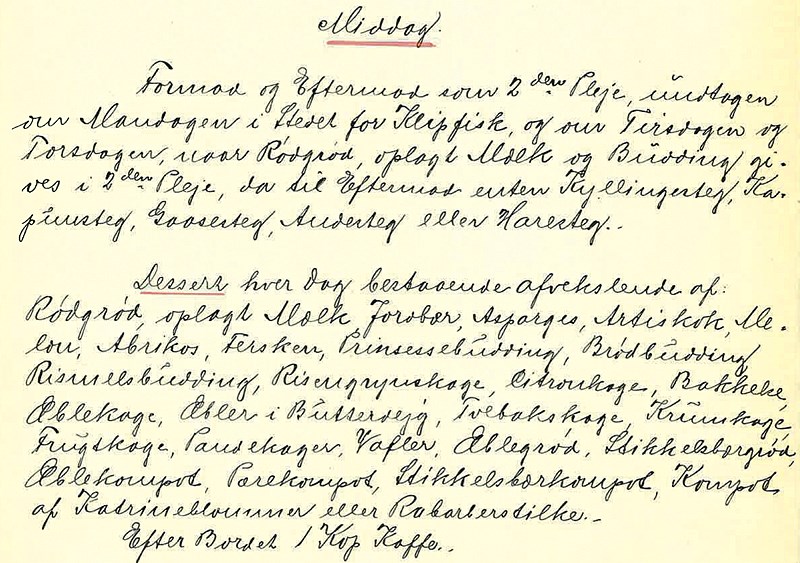 Middag.
Formad og Eftermad som 2den Pleje, undtagen
om Mandagen i Stedet for Klipfisk, og om Tirsdagen og
Torsdagen, naar Rødgrød, oplagt Mælk og Budding gi-
ves i 2den Pleje, da til Eftermad enten Kyllingesteg, Ka-
punsteg, Gaasesteg, Andesteg eller Haresteg.
Dessert hver Dag bestaaende afvekslende af:
Rødgrød, oplagt Mælk, Jordbær, Asparges, Artiskok, Me-
lon, Abrikos, Fersken, Prinsessebudding, Brødbudding
Rismelsbudding, Risengrynskage, Citronkage, Bakkelse,
Æblekage, Æbler i Butterdejg, Tvebakskage, Krumkage,
Frugtkage, Pandekager, Vafler, Æblegrød, Stikkelsbærgrød,
Æblekompot, Pærekompot, Stikkelsbærkompot, Kompot
af Katrineblommer eller Rabarberstilke.
Efter Bordet 1 Kop Kaffe.